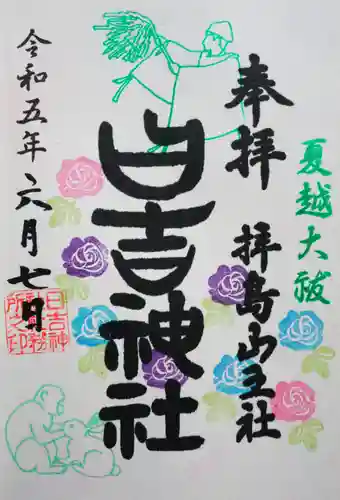 夏越大祓
奉拝 拝島山王社
日吉神社
令和五年六月七日
日吉神
社務
所之印